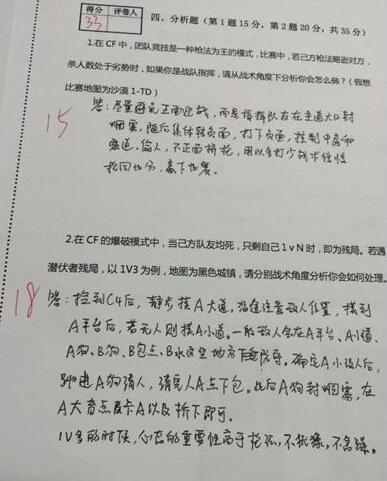 得分 评卷人
33
四、分析题（第1题15分，第2题20分，共35分）
1.在CF中，团队竞技是一种枪法为王的模式，比赛中，若己方枪法略逊对方，
杀人数处于劣势时，如果你是战队指挥，请从战术角度下分析你会怎么做？（假想
比赛地图为沙漠1-TD）
15
答：尽量避免正面迎战，而是指挥队友在主道大口封
烟雾，随后集体转页面，打下页面，控制中房和
窄道，偷人，不正面拼枪，用以多打少战术慢慢
救回比分，赢下比赛。
2.在CF的爆破模式中，当己方队友均死，只剩自己1vN时，即为残局。若遇
潜伏者残局，以1V3为例，地图为黑色城镇，请分别战术角度分析你会如何处理。
18
答：捡到C4后，静步摸A大道，沿途注意敌人位置，摸到
A平台后，若无人则摸A小道。一般敌人会在A平台、A小道、
A狗、B狗、B包点、B水这些地方防守。确定A小没人后，
跳进A狗清人，清完A点下包。此后A狗封烟雾，在
A大盲点卡A以及拆下即可。
1V多的时候，心态的重要性高于枪法，不犹豫，不急躁。